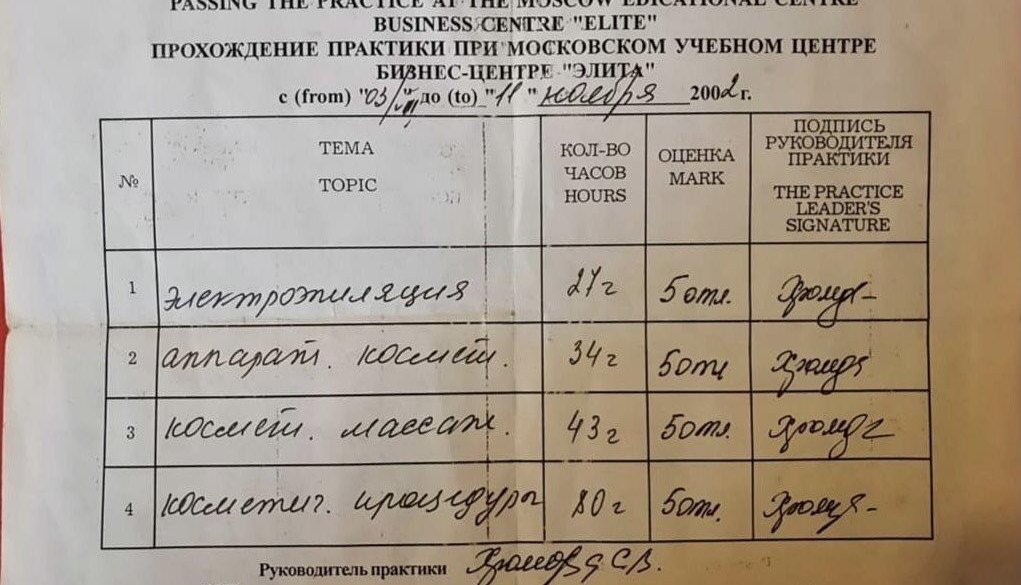 PASSING THE PRACTICE AT THE MOSCOW EDICATIONAL CENTRE
BUSINESS CENTRE "ELITE"
ПРОХОЖДЕНИЕ ПРАКТИКИ ПРИ МОСКОВСКОМ УЧЕБНОМ ЦЕНТРЕ
БИЗНЕС-ЦЕНТРЕ "ЭЛИТА"
с (from) "03/VIII" до (to) "11" ноября 2002 г.
№ ТЕМА TOPIC КОЛ-ВО ЧАСОВ HOURS ОЦЕНКА MARK ПОДПИСЬ РУКОВОДИТЕЛЯ ПРАКТИКИ THE PRACTICE LEADER'S SIGNATURE
1 электроэпиляция 27г 5 отл.
2 аппарат. космет. 34г 5 отл
3 космет. массаж. 43г 5 отл.
4 косметич. процедуры 80г 5 отл.
Руководитель практики Хромова С.В.